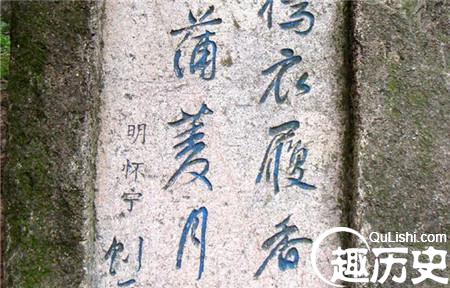 衣履香
蒲菱月
明怀宁
QuLishi.com
趣历史